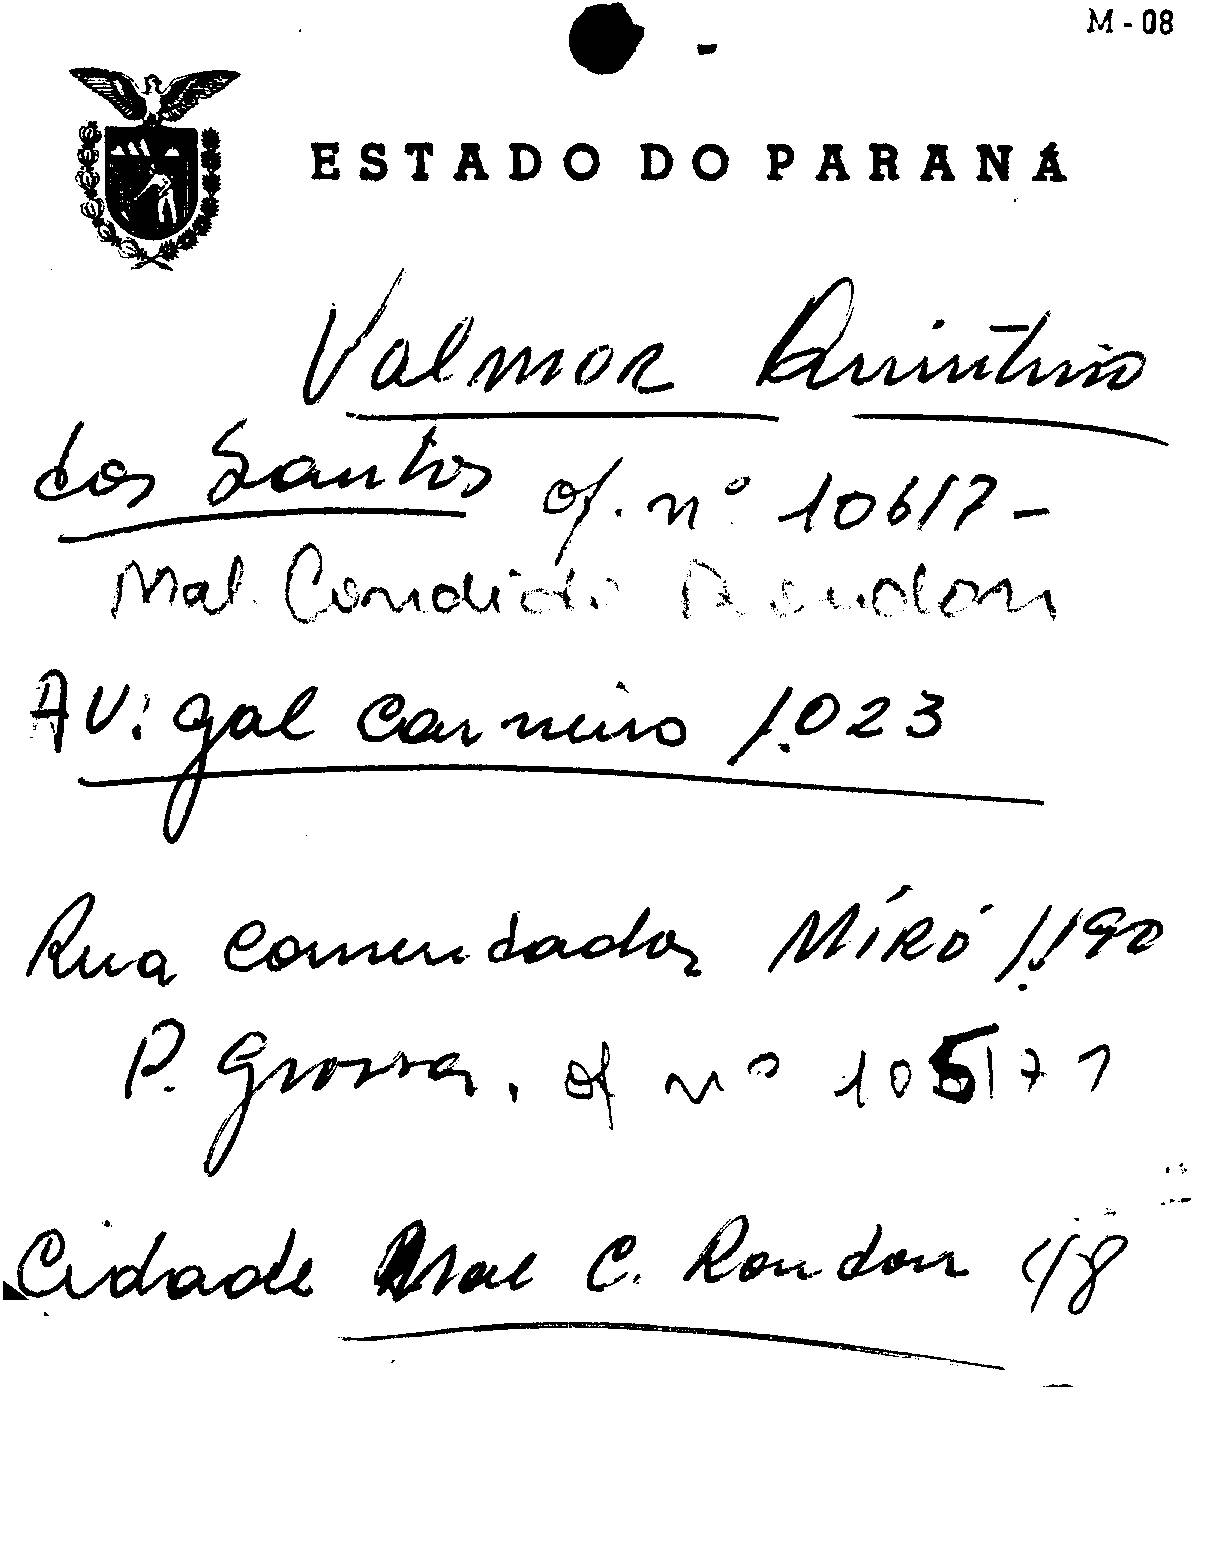 M - 08
ESTADO DO PARANÁ
Valmor Quintino
dos Santos of. nº 10617 -
Mal. Candido Rondon
AV. gal Carneiro 1.023
Rua Comendador MíRó 1.190
P. Grossa, of nº 105171
Cidade Mal C. Rondon 48